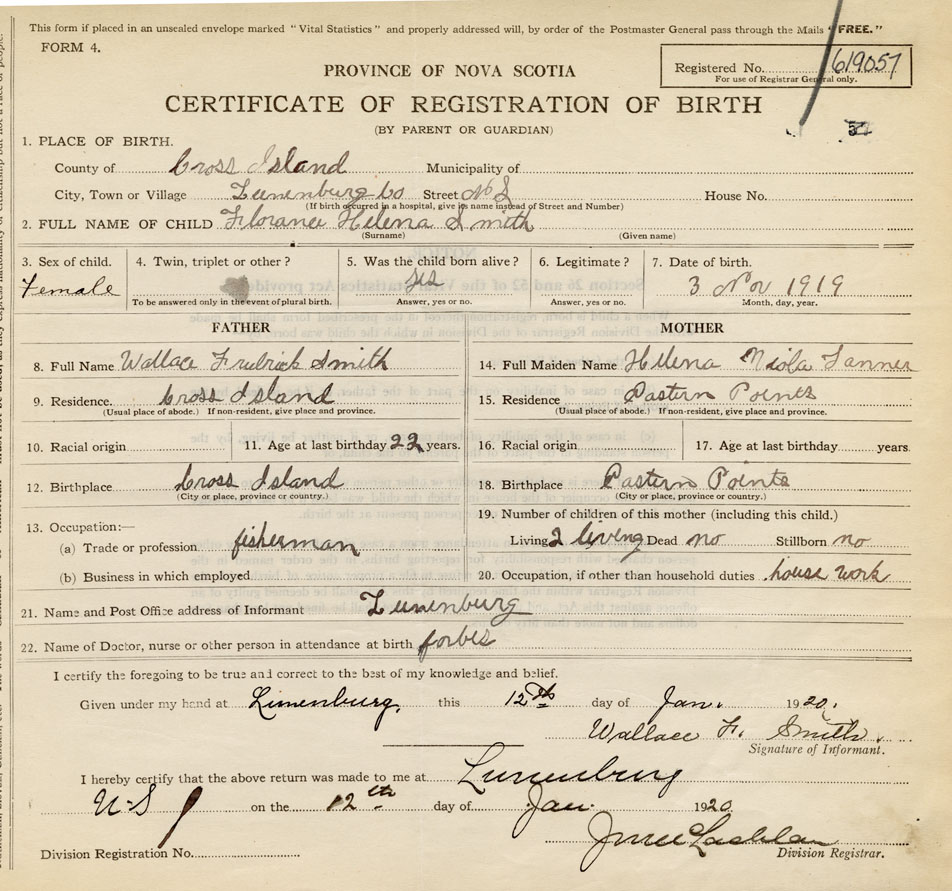 This form if placed in an unsealed envelope marked "Vital Statistics" and properly addressed will, by order of the Postmaster General pass through the Mails "FREE."
FORM 4.
Registered No. 619057
For use of Registrar General only.
PROVINCE OF NOVA SCOTIA
CERTIFICATE OF REGISTRATION OF BIRTH
(BY PARENT OR GUARDIAN)
1. PLACE OF BIRTH.
County of Cross Island Municipality of
City, Town or Village Lunenburg Co Street N S House No.
(If birth occurred in a hospital, give its name instead of Street and Number)
2. FULL NAME OF CHILD Florance Helena Smith
(Surname) (Given name)
3. Sex of child. 4. Twin, triplet or other? 5. Was the child born alive? 6. Legitimate? 7. Date of birth.
Female yes 3 Nov 1919
To be answered only in the event of plural birth. Answer, yes or no. Answer, yes or no. Month, day, year.
FATHER MOTHER
8. Full Name Wallace Fredrick Smith 14. Full Maiden Name Helena Niola Tanner
9. Residence Cross Island 15. Residence Eastern Points
(Usual place of abode.) If non-resident, give place and province. (Usual place of abode.) If non-resident, give place and province.
10. Racial origin 11. Age at last birthday 22 years. 16. Racial origin 17. Age at last birthday years.
12. Birthplace Cross Island 18. Birthplace Eastern Points
(City or place, province or country.) (City or place, province or country.)
13. Occupation:— 19. Number of children of this mother (including this child.)
(a) Trade or profession fisherman Living 2 living Dead no Stillborn no
(b) Business in which employed 20. Occupation, if other than household duties house work
21. Name and Post Office address of Informant Lunenburg
22. Name of Doctor, nurse or other person in attendance at birth forbes
I certify the foregoing to be true and correct to the best of my knowledge and belief.
Given under my hand at Lunenburg, this 12th day of Jan. 1920.
Wallace F. Smith.
Signature of Informant.
I hereby certify that the above return was made to me at Lunenburg
N-S on the 12th day of Jan. 1920
Division Registration No. Division Registrar.